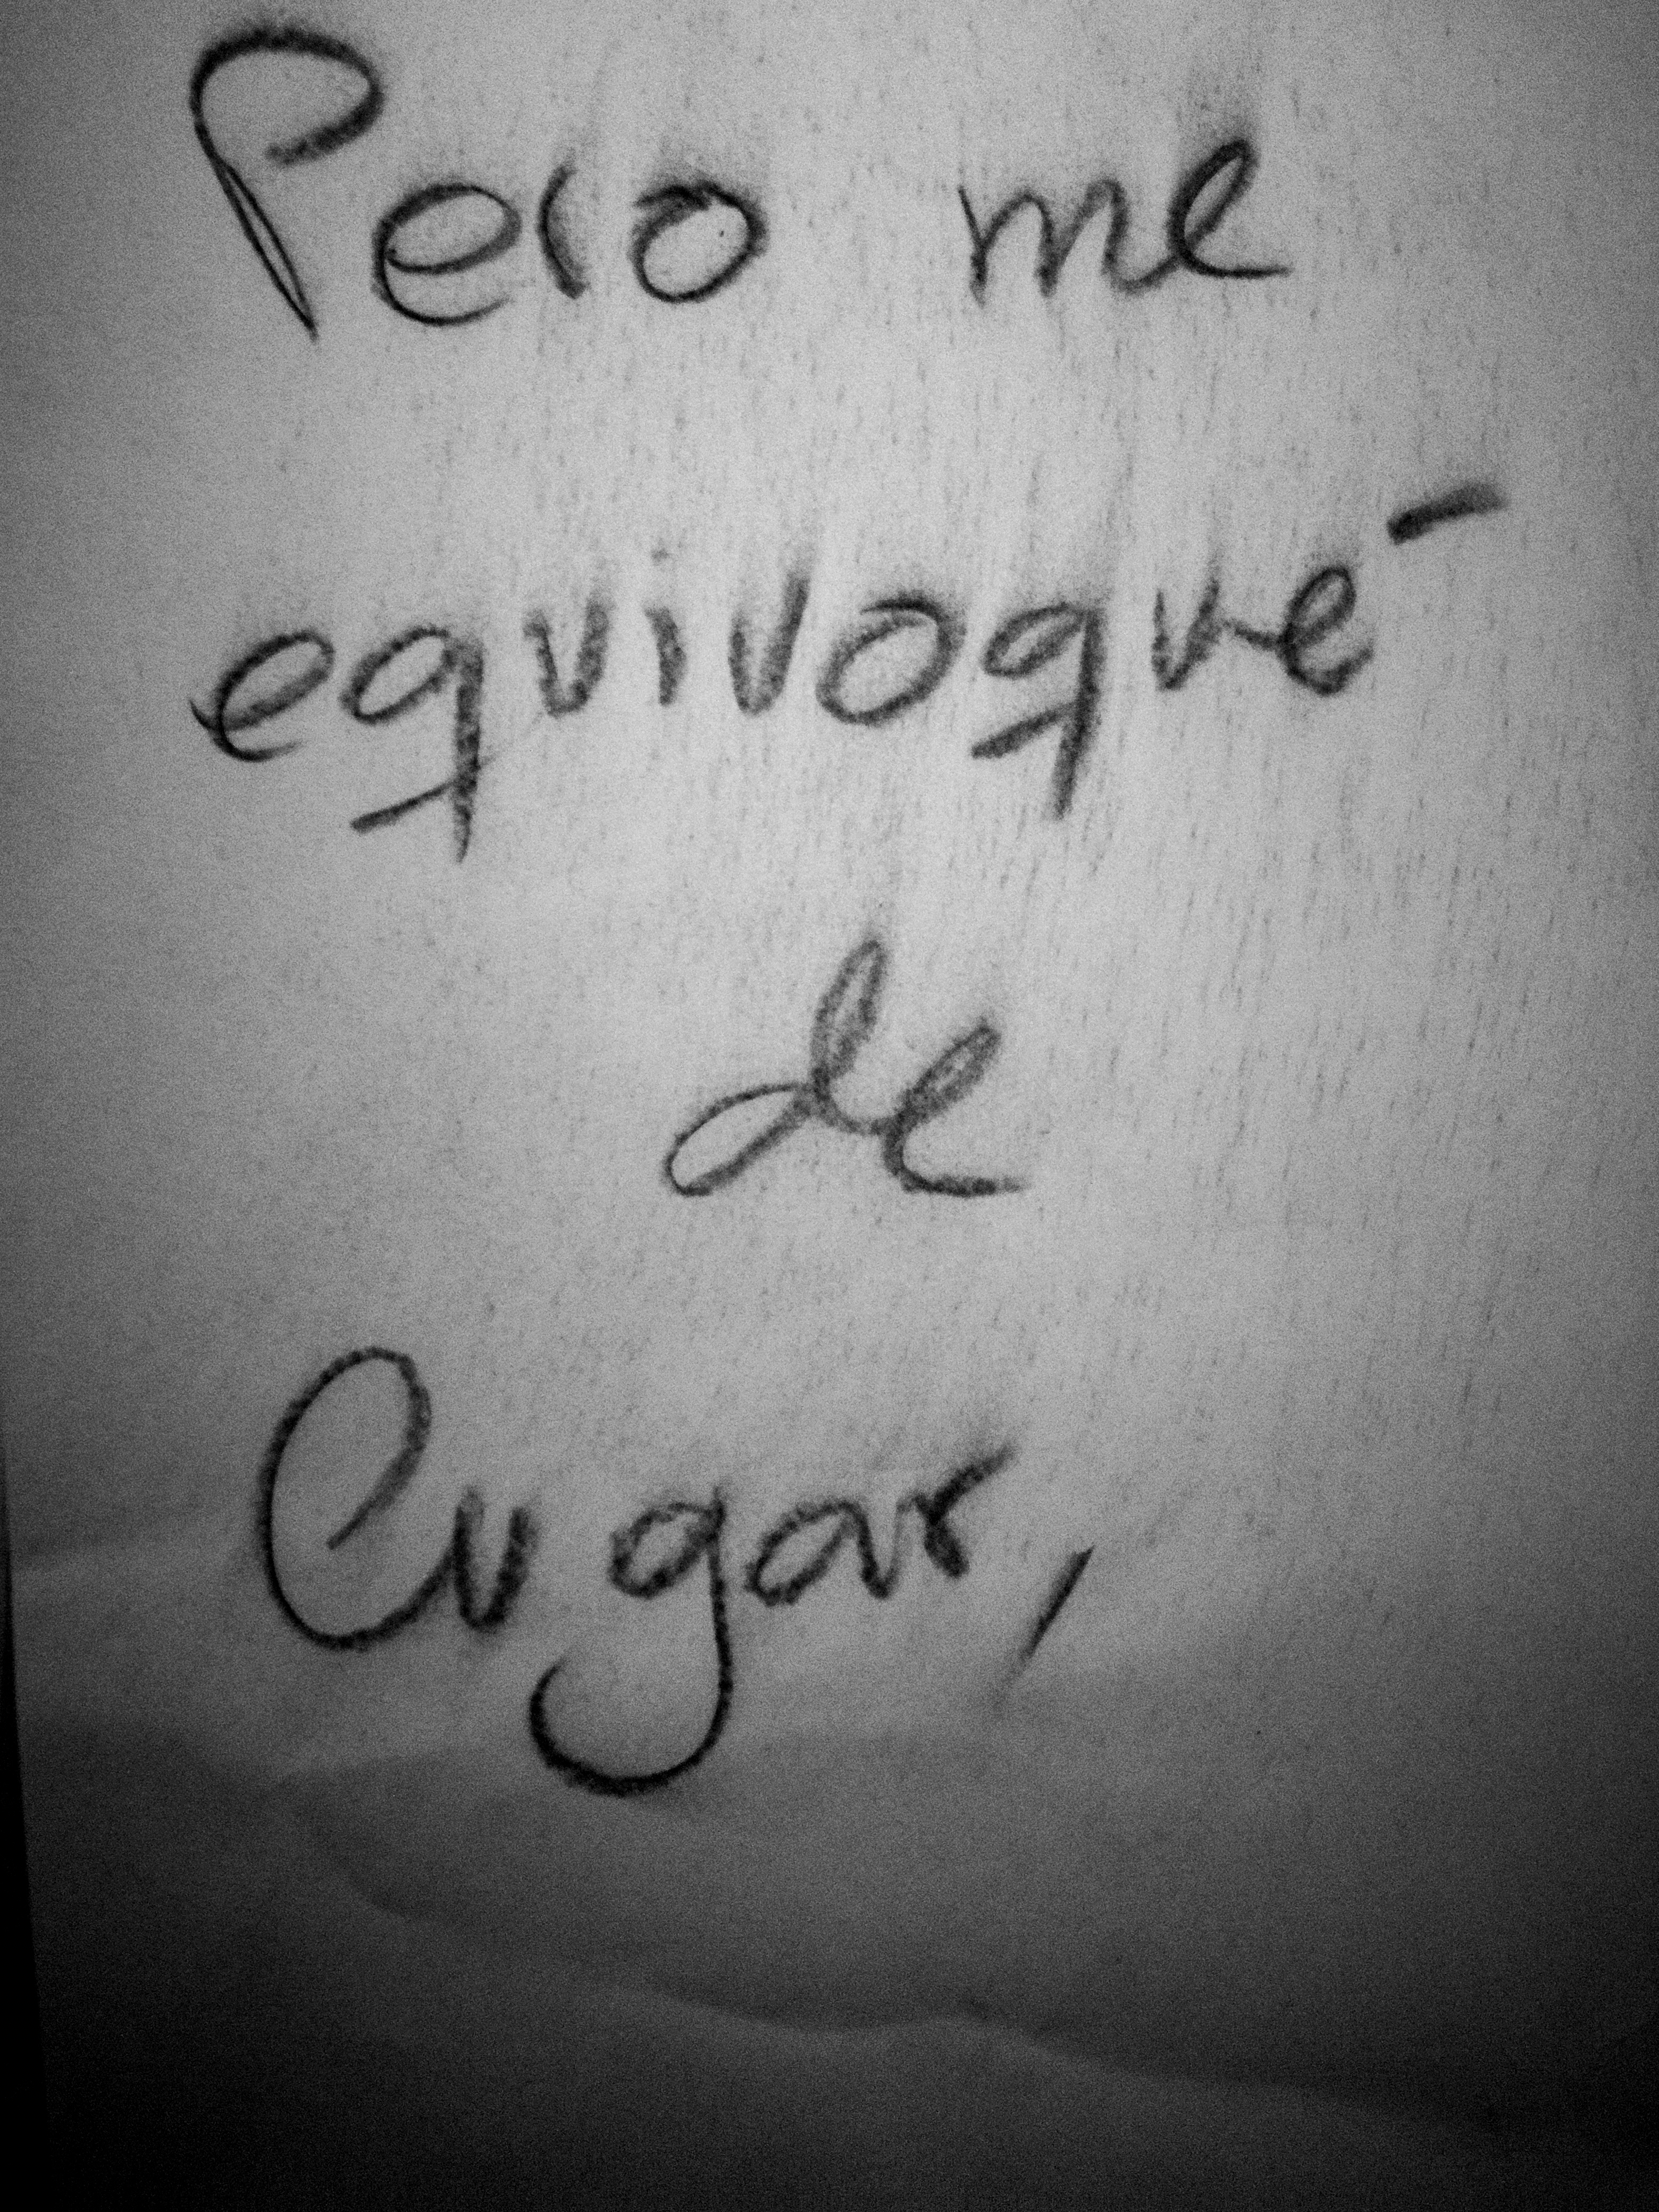 Pero me
equivoqué
de
Cugar,